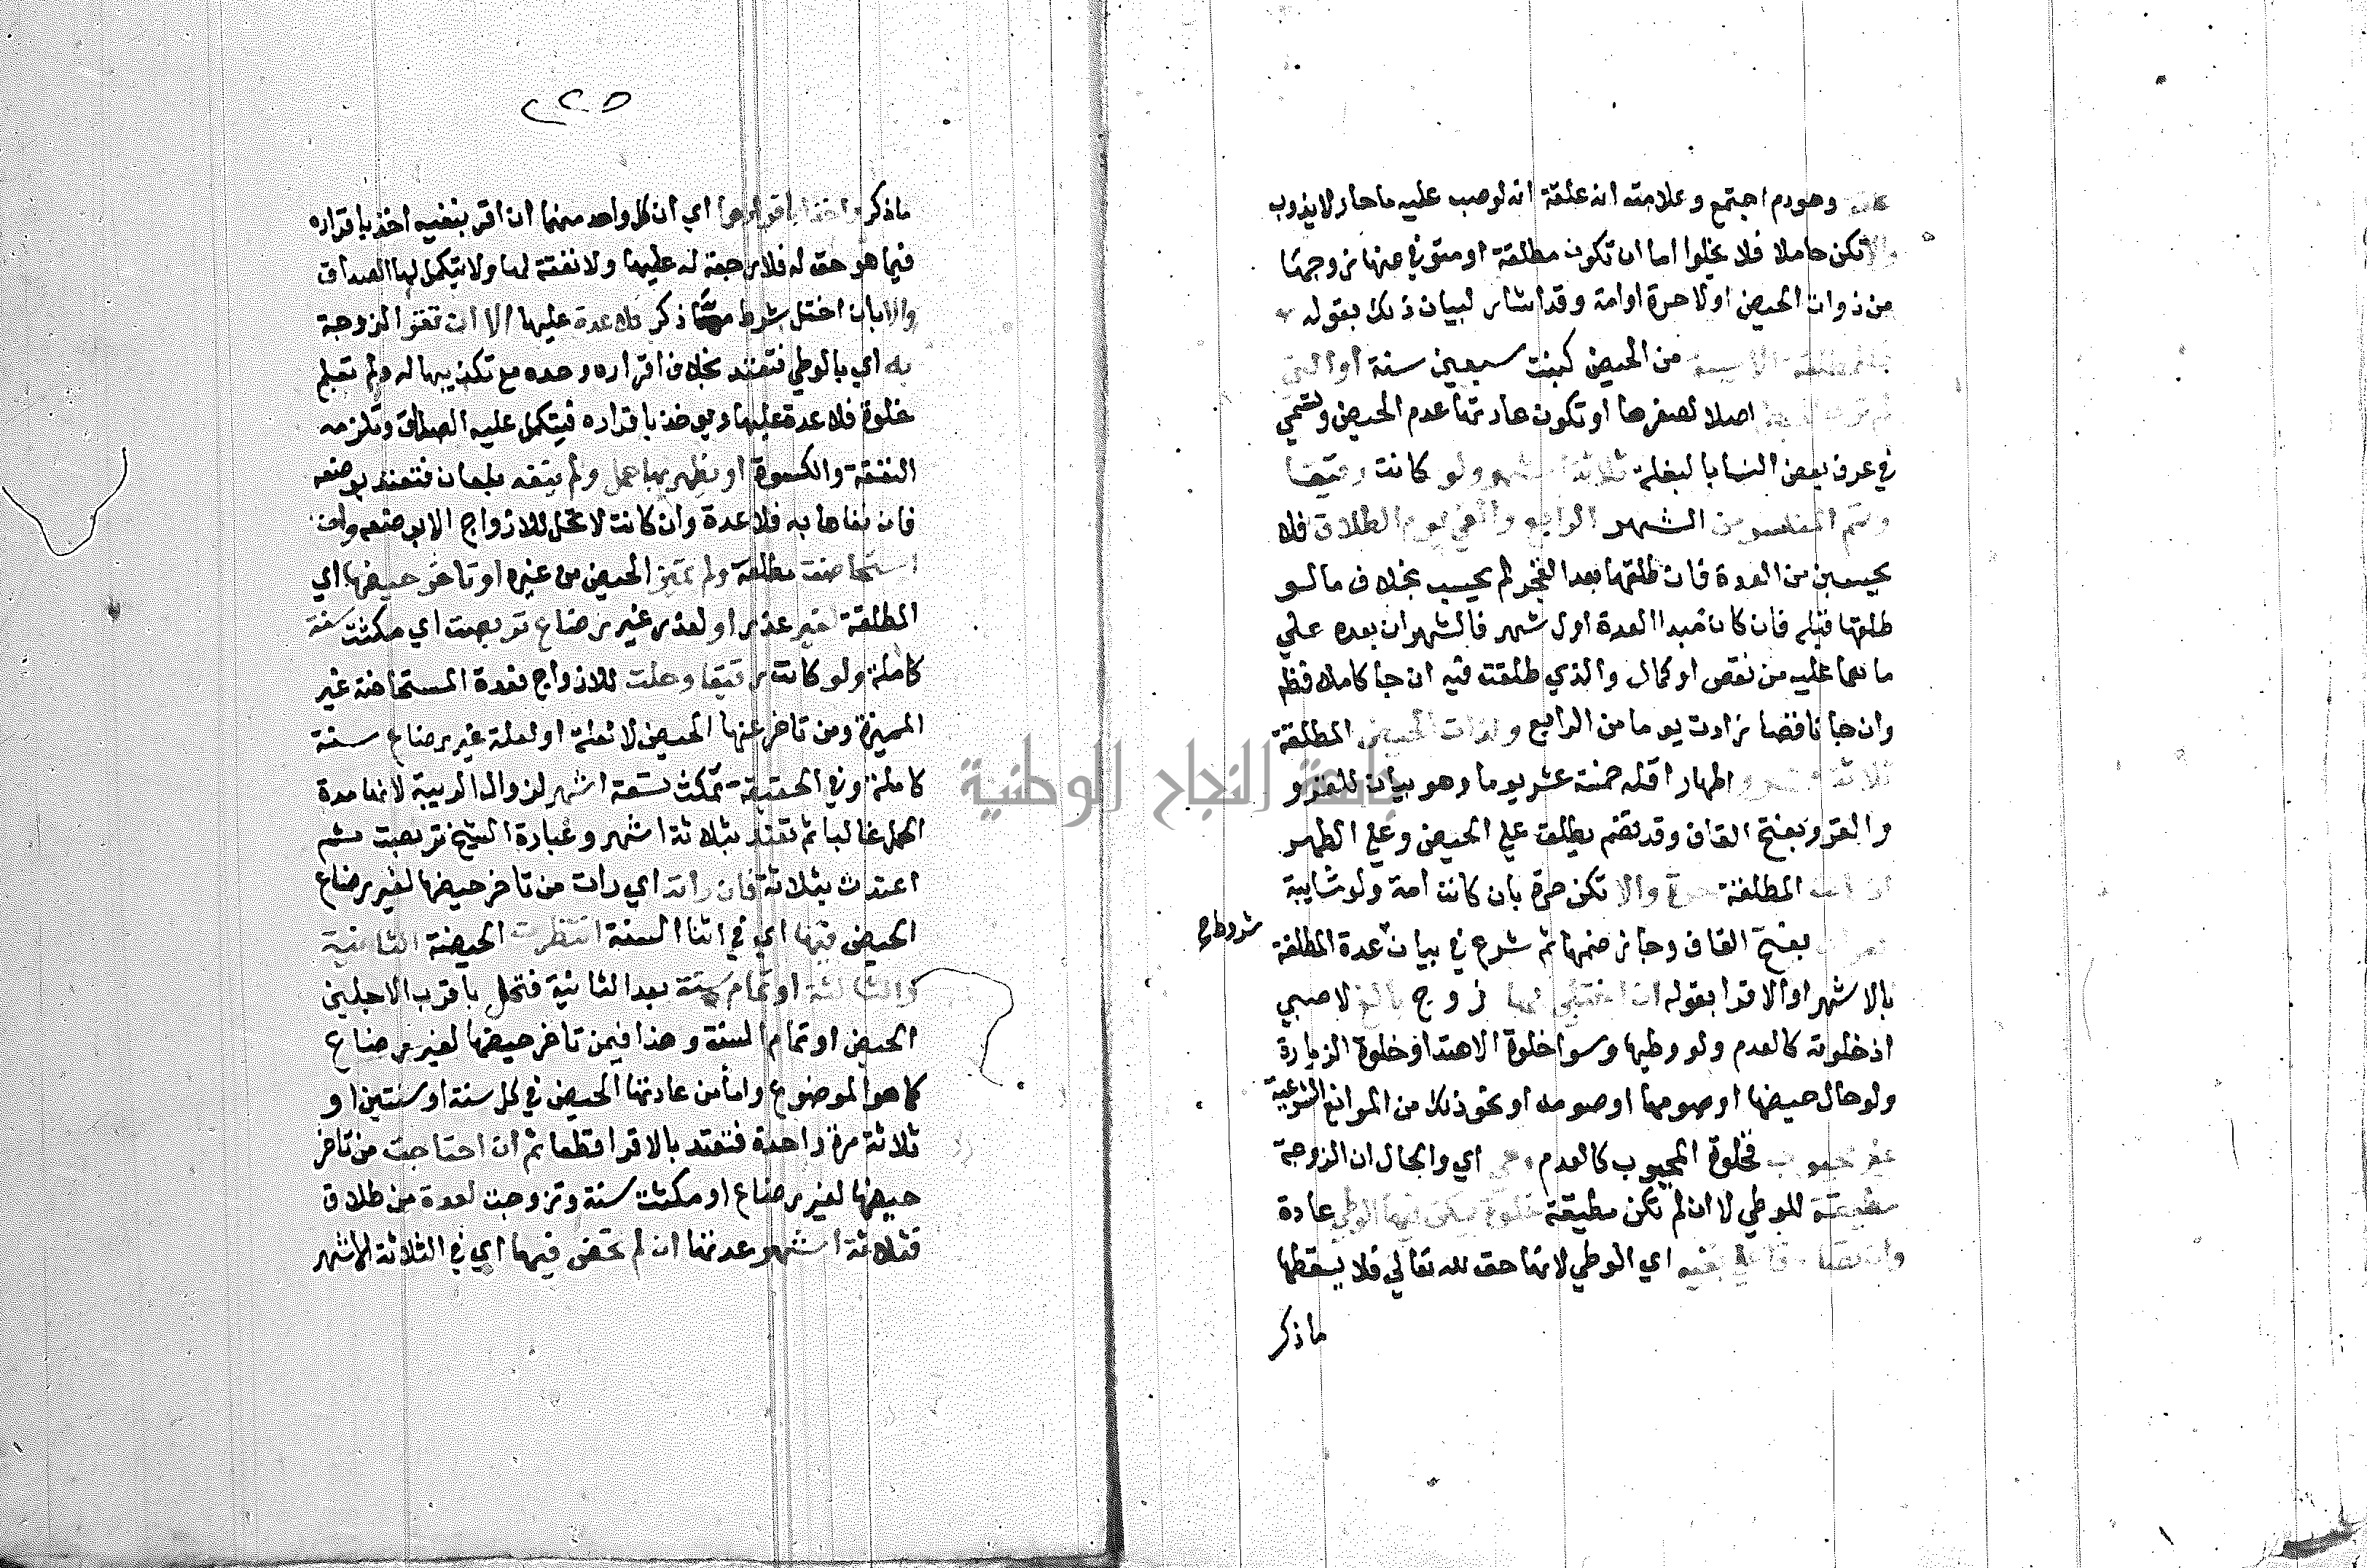 وهو دم اجتمع وعلامته انه علقة انه لوصب عليه ماحار لا يذوب
والا تكن حاملا فلا يخلوا اما ان تكون مطلقة او متوفي عنها زوجها
من ذوات الحيض او لا حرة او امة وقد اشار لبيان ذلك بقوله
من الحيض كبنت سبعين سنة او التي
اصلا لصغرها او تكون عادتها عدم الحيض وتسمي
في عرف بعض النسا بالبغلة ثلاثة اشهر ولو كانت رقيقا
وتتم المنكسر من الشهر الرابع والغي يوم الطلاق فلا
يحسب من العدة فان طلقها بعد الفجر لم يحسب بخلاف ما لو
طلقها قبله فان كان مبدا العدة اول شهر فالشهران بعده علي
ما هما عليه من نقص او كمال والذي طلقت فيه ان جا كاملا فظ
وان جا ناقصا زادت يوما من الرابع ولذات الحيض المطلقة
ثلاثة اطهار اقله خمسة عشر يوما وهو بيان للقرو
والقرو بفتح القاف وقد تضم يطلق علي الحيض وعلي الطهر
المطلقة حرة والا تكن حرة بان كانت امة ولو شايبة
بفتح القاف وجاز ضمها ثم شرع في بيان عدة المطلقة
شروط
بالاشهر او الاقرا بقوله ان اختلي بها زوج بالغ لا صبي
اذ خلوته كالعدم ولو وطيها وسوا خلوة الاهتدا وخلوة الزيارة
ولو حال حيضها او صومها او صومه او نحو ذلك من الموانع الشرعية
غير مجبوب فخلوة المجبوب كالعدم وهي اي والحال ان الزوجة
مطيقة للوطي لا ان لم تكن مطيقة خلوة يمكن فيها الوطي عادة
وان تصادقا علي نفيه اي الوطي لانها حق لله تعالي فلا يسقطها
ما ذكر
٢٢٥
ما ذكر واخذا باقرارهما اي ان كل واحد منهما ان اقر بنفيه اخذ باقراره
فيما هو حق له فلا رجعة له عليها ولا نفقة لها ولا يتكمل لها الصداق
والا بان اختل شرط مما ذكر فلا عدة عليها الا ان تقر الزوجة
به اي بالوطي فتعتد بخلاف اقراره وحده مع تكذيبها له ولم تعلم
خلوة فلا عدة عليها ويوخذ باقراره فيتكمل عليه الصداق وتلزمه
النفقة والكسوة او يظهر بها حمل ولم ينفه بلعان فتعتد بوضعه
فان نفاها به فلا عدة وان كانت لا تحل للازواج الا بوضعه وان
استحاضت مطلقة ولم تميز الحيض من غيره او تاخر حيضها اي
المطلقة لغير عذر او لعذر غير رضاع تربصت اي مكثت سنة
كاملة ولو كانت رقيقا وحلت للازواج فعدة المستحاضة غير
المميزة ومن تاخر عنها الحيض لا لعلة او لعلة غير رضاع سنة
كاملة وفي الحقيقة تمكث تسعة اشهر لزوال الريبة لانها مدة
الحمل غالبا ثم تعتد بثلاثة اشهر وعبارة الشيخ تربصت ثم
اعتدت بثلاثة فان راته اي رات من تاخر حيضها لغير رضاع
الحيض فيها اي في اثنا السنة انتظرت الحيضة الثانية
والثالثة او تمام سنة بعد الثانية فتحل باقرب الاجلين
الحيض او تمام السنة وهذا فيمن تاخر حيضها لغير رضاع
كما هو الموضوع واما من عادتها الحيض في كل سنة او سنتين او
ثلاثة مرة واحدة فتعتد بالاقرا قطعا ثم ان احتاجت من تاخر
حيضها لغير رضاع او مكثت سنة وتزوجت لعدة من طلاق
فثلاثة اشهر عدتها ان لم تحض فيها اي في الثلاثة الاشهر
جامعة النجاح الوطنية